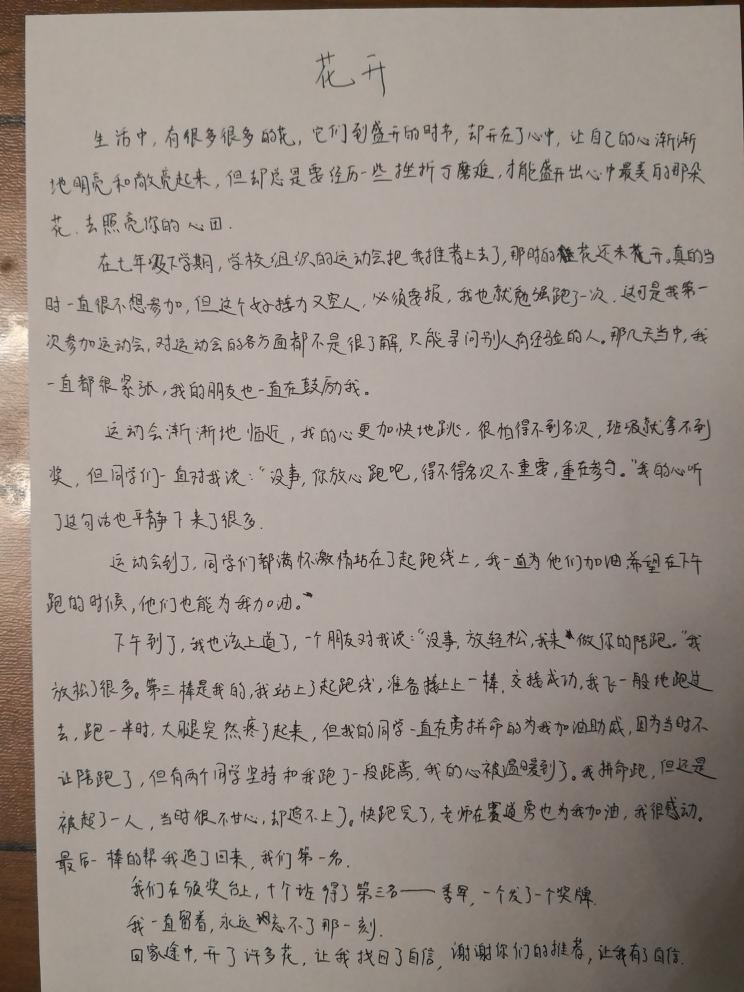 花开
生活中，有很多很多的花，它们到盛开的时节，却开在了心中，让自己的心渐渐
地明亮和敞亮起来，但却总是要经历一些挫折与磨难，才能盛开出心中最美的那朵
花，去照亮你的心田．
在七年级下学期，学校组织的运动会把我推荐上去了，那时的花还未花开。真的当
时一直很不想参加，但这个女子接力又空人，必须要报，我也就勉强跑了一次，这可是我第一
次参加运动会，对运动会的各方面都不是很了解，只能寻问别人有经验的人。那几天当中，我
一直都很紧张，我的朋友也一直在鼓励我。
运动会渐渐地临近，我的心更加快地跳，很怕得不到名次，班级就拿不到
奖，但同学们一直对我说：“没事，你放心跑吧，得不得名次不重要，重在参与。”我的心听
了这句话也平静下来了很多．
运动会到了，同学们都满怀激情站在了起跑线上，我一直为他们加油，希望在下午
跑的时候，他们也能为我加油。
下午到了，我也该上道了，一个朋友对我说：“没事，放轻松，我来做你的陪跑。”我
放松了很多。第三棒是我的，我站上了起跑线，准备接上上一棒，交接成功，我飞一般地跑过
去，跑一半时，大腿突然疼了起来，但我的同学一直在旁拼命的为我加油助威，因为当时不
让陪跑了，但有两个同学坚持和我跑了一段距离，我的心被温暖到了。我拼命跑，但还是
被超了一人，当时很不甘心，却追不上了。快跑完了，老师在赛道旁也为我加油，我很感动。
最后一棒的帮我追了回来，我们第一名．
我们在颁奖台上，十个班得了第三名——季军，一个发了一个奖牌．
我一直留着，永远忘不了那一刻．
回家途中，开了许多花，让我找回了自信，谢谢你们的推荐，让我有了自信．